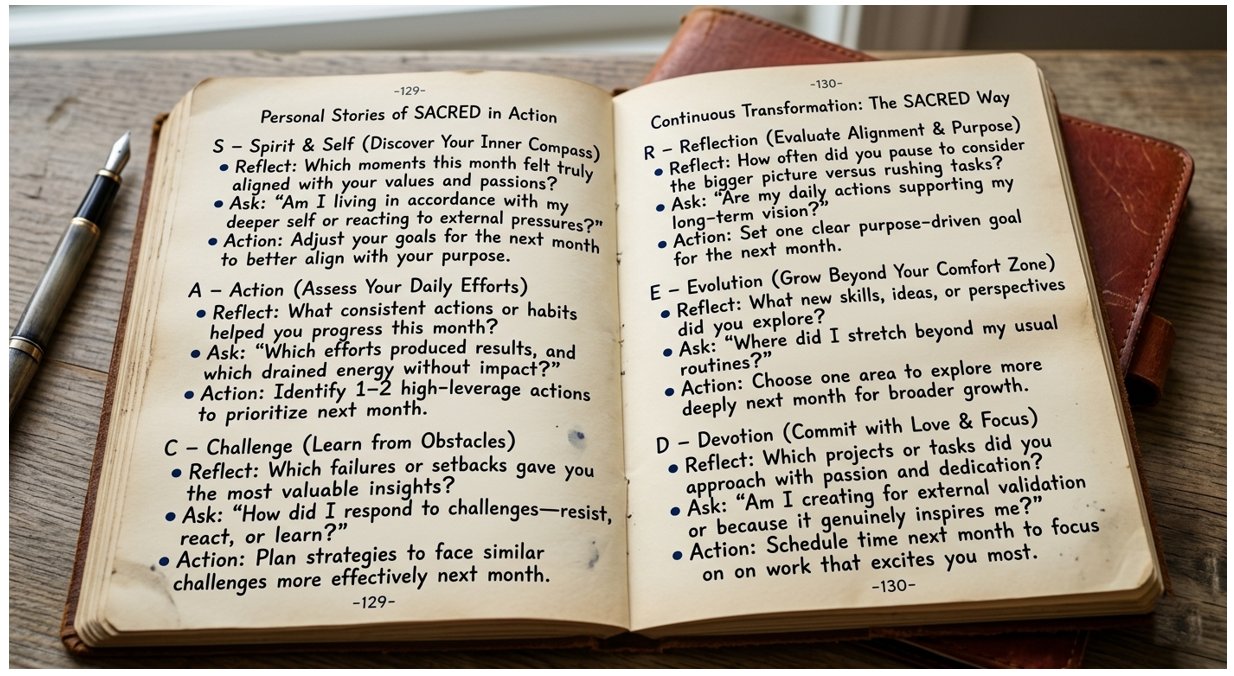 -129-
Personal Stories of SACRED in Action
S – Spirit & Self (Discover Your Inner Compass)
• Reflect: Which moments this month felt truly
aligned with your values and passions?
• Ask: “Am I living in accordance with my
deeper self or reacting to external pressures?”
• Action: Adjust your goals for the next month
to better align with your purpose.
A – Action (Assess Your Daily Efforts)
• Reflect: What consistent actions or habits
helped you progress this month?
• Ask: “Which efforts produced results, and
which drained energy without impact?”
• Action: Identify 1–2 high-leverage actions
to prioritize next month.
C – Challenge (Learn from Obstacles)
• Reflect: Which failures or setbacks gave you
the most valuable insights?
• Ask: “How did I respond to challenges—resist,
react, or learn?”
• Action: Plan strategies to face similar
challenges more effectively next month.
-129-
-130-
Continuous Transformation: The SACRED Way
R – Reflection (Evaluate Alignment & Purpose)
• Reflect: How often did you pause to consider
the bigger picture versus rushing tasks?
• Ask: “Are my daily actions supporting my
long-term vision?”
• Action: Set one clear purpose-driven goal
for the next month.
E – Evolution (Grow Beyond Your Comfort Zone)
• Reflect: What new skills, ideas, or perspectives
did you explore?
• Ask: “Where did I stretch beyond my usual
routines?”
• Action: Choose one area to explore more
deeply next month for broader growth.
D – Devotion (Commit with Love & Focus)
• Reflect: Which projects or tasks did you
approach with passion and dedication?
• Ask: “Am I creating for external validation
or because it genuinely inspires me?”
• Action: Schedule time next month to focus
on on work that excites you most.
-130-